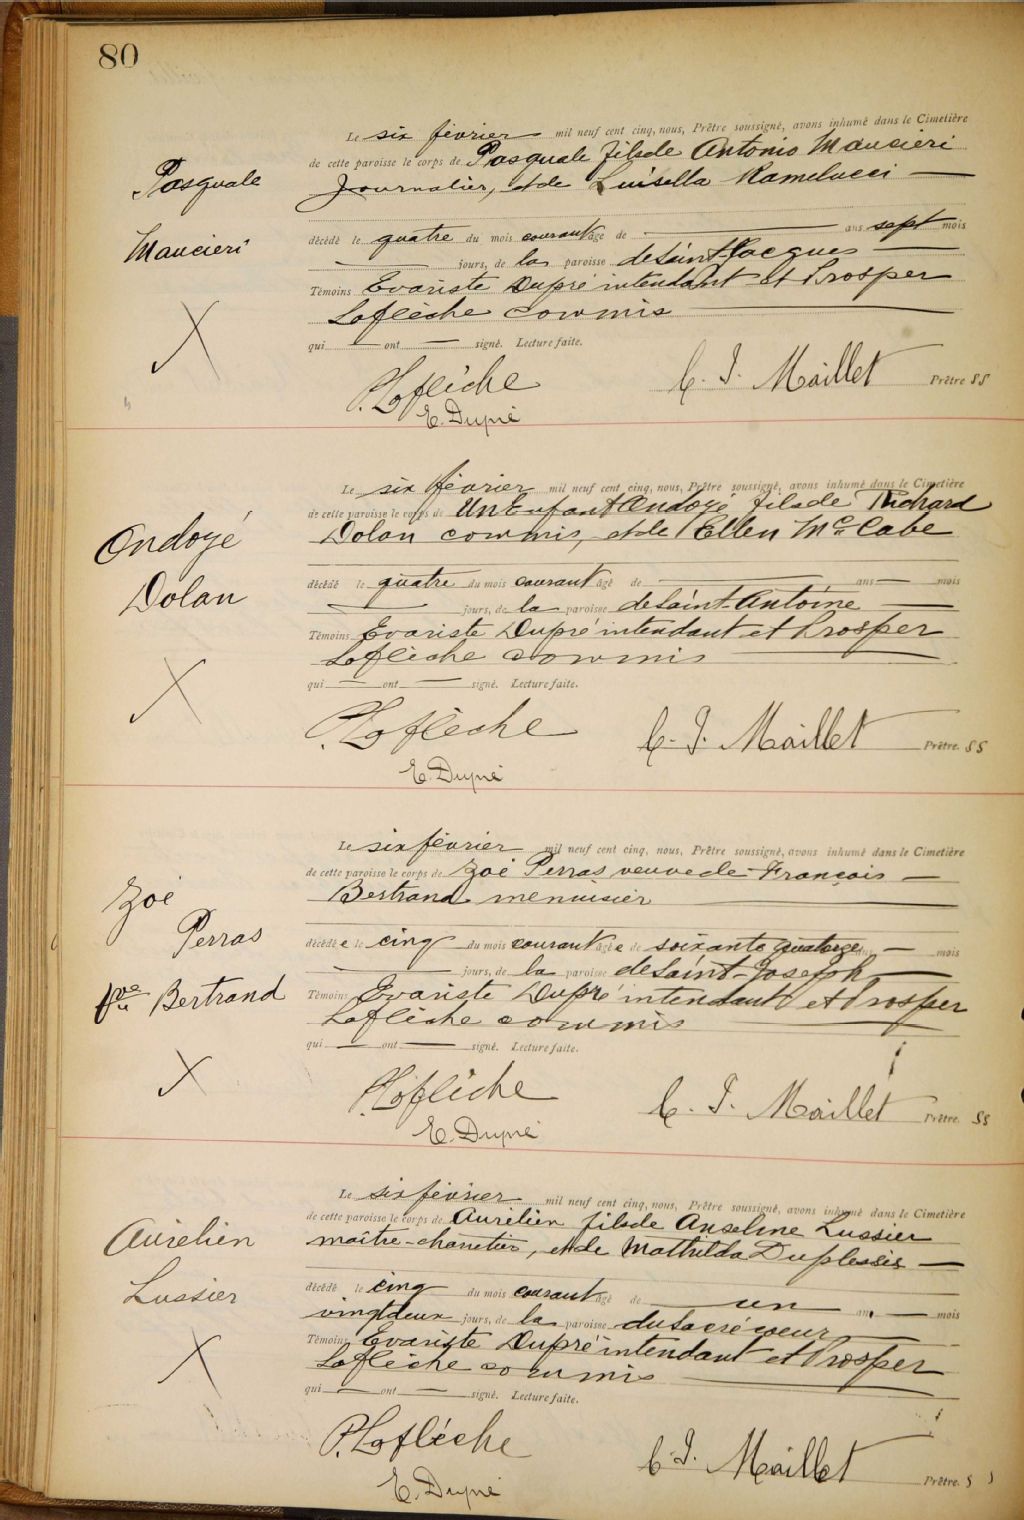 80
Pasquale
Maucieri
Le six février mil neuf cent cinq, nous, Prêtre soussigné, avons inhumé dans le Cimetière
de cette paroisse le corps de Pasquale fils de Antonio Maucieri
Journalier, et de Luisella Ramelucci
décédé le quatre du mois courant âgé de ans sept mois
jours, de la paroisse de Saint-Jacques
Témoins Evariste Dupré intendant et Prosper
Laflèche commis
qui ont signé. Lecture faite.
P. Laflèche
E. Dupré
C. J. Maillet Prêtre SS
Ondoyé
Dolan
Le six février mil neuf cent cinq, nous, Prêtre soussigné, avons inhumé dans le Cimetière
de cette paroisse le corps de Un Enfant Ondoyé fils de Richard
Dolan commis, et de Ellen McCabe
décédé le quatre du mois courant âgé de ans mois
jours, de la paroisse de Saint-Antoine
Témoins Evariste Dupré intendant et Prosper
Laflèche commis
qui ont signé. Lecture faite.
P. Laflèche
E. Dupré
C. J. Maillet Prêtre. SS
Zoé
Perras
Vve Bertrand
Le six février mil neuf cent cinq, nous, Prêtre soussigné, avons inhumé dans le Cimetière
de cette paroisse le corps de Zoé Perras veuve de François
Bertrand menuisier
décédée le cinq du mois courant âgée de soixante quatorze ans mois
jours, de la paroisse de Saint-Joseph
Témoins Evariste Dupré intendant et Prosper
Laflèche commis
qui ont signé. Lecture faite.
P. Laflèche
E. Dupré
C. J. Maillet Prêtre. SS
Aurélien
Lussier
Le six février mil neuf cent cinq, nous, Prêtre soussigné, avons inhumé dans le Cimetière
de cette paroisse le corps de Aurélien fils de Anselme Lussier
maître-charretier, et de Mathilda Duplessis
décédé le cinq du mois courant âgé de un an, mois
vingt deux jours, de la paroisse du Sacré coeur
Témoins Evariste Dupré intendant et Prosper
Laflèche commis
qui ont signé. Lecture faite.
P. Laflèche
E. Dupré
C. J. Maillet Prêtre. S S